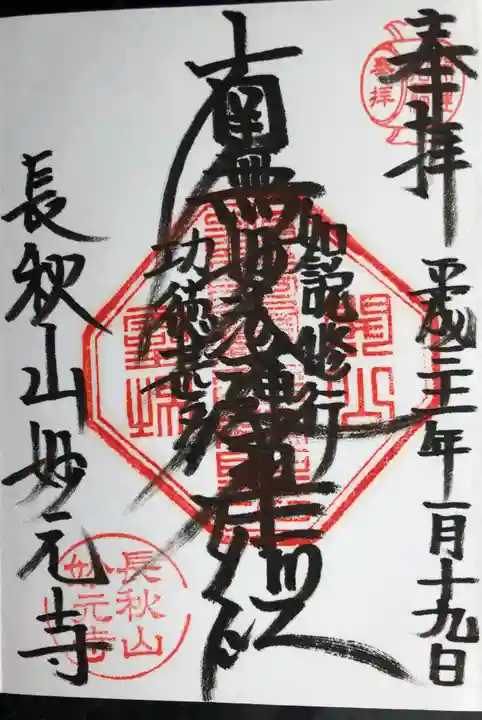 奉拝
平成三十一年一月十九日
如説修行
南無妙法蓮華経
功徳甚多
長秋山妙元寺
長秋山
妙元寺
参拝